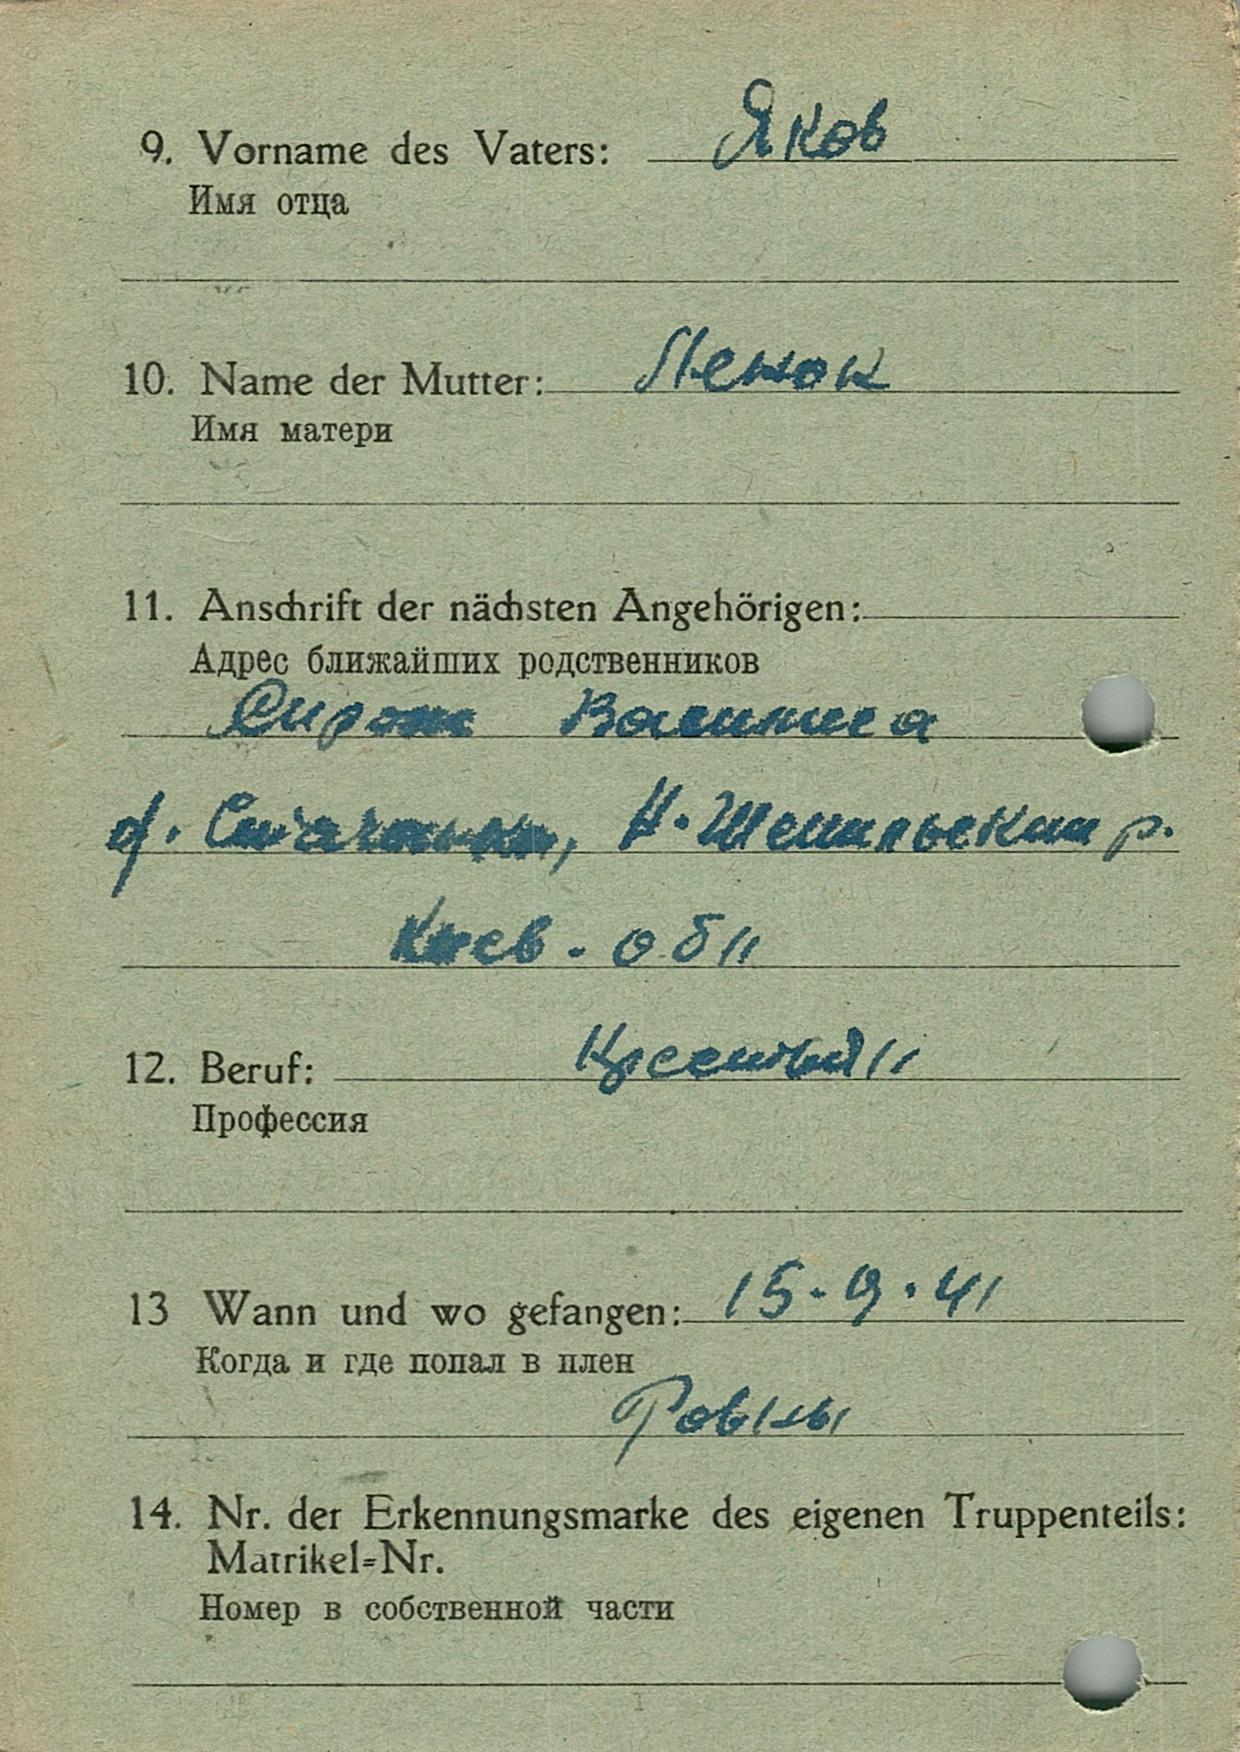 9. Vorname des Vaters: Яков
Имя отца
10. Name der Mutter: Ленок
Имя матери
11. Anschrift der nächsten Angehörigen:
Адрес ближайших родственников
Василиса
р.
Киев. обл
12. Beruf:
Профессия
13 Wann und wo gefangen: 15.9.41
Когда и где попал в плен
Ровны
14. Nr. der Erkennungsmarke des eigenen Truppenteils:
Matrikel=Nr.
Номер в собственной части